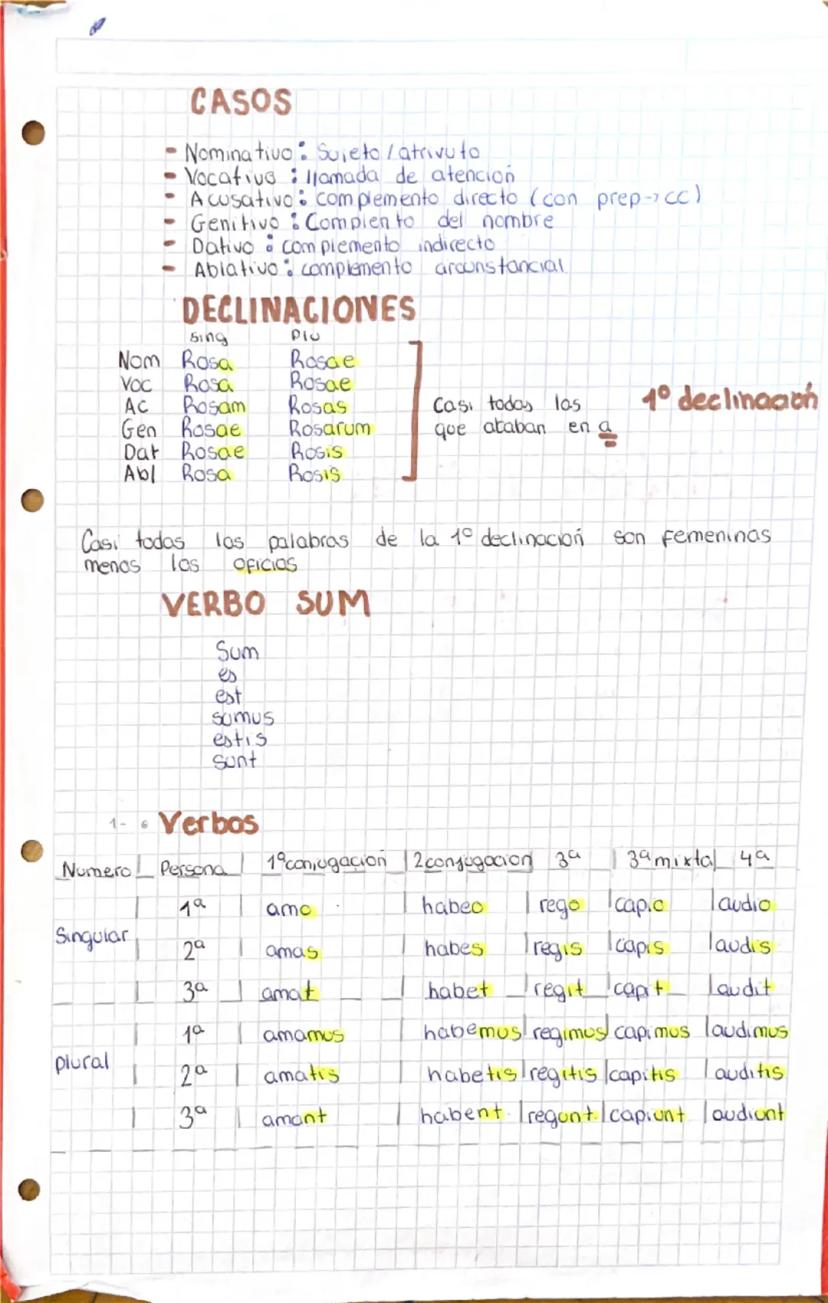 CASOS
- Nominativo: Sujeto / atrivuto
- Vocativo: llamada de atención
- Acusativo: complemento directo (con prep→CC)
- Genitivo: Complento del nombre
- Dativo: complemento indirecto
- Ablativo: complemento circunstancial
DECLINACIONES
Sing Plu
Nom Rosa Rosae
Voc Rosa Rosae
AC Rosam Rosas
Gen Rosae Rosarum
Dat Rosae Rosis
Abl Rosa Rosis
Casi todas las
que acaban en a
1º declinación
Casi todas las palabras de la 1º declinación son femeninas
menos los oficios
VERBO SUM
Sum
es
est
sumus
estis
sunt
1- 6 Verbos
Numero Persona 1ºconjugación 2conjugacion 3ª 3ªmixta 4ª
Singular 1ª amo habeo rego capio audio
2ª amas habes regis capis audis
3ª amat habet regit capit audit
plural 1ª amamus habemus regimus capimus audimus
2ª amatis habetis regitis capitis auditis
3ª amant habent regunt capiunt audiunt